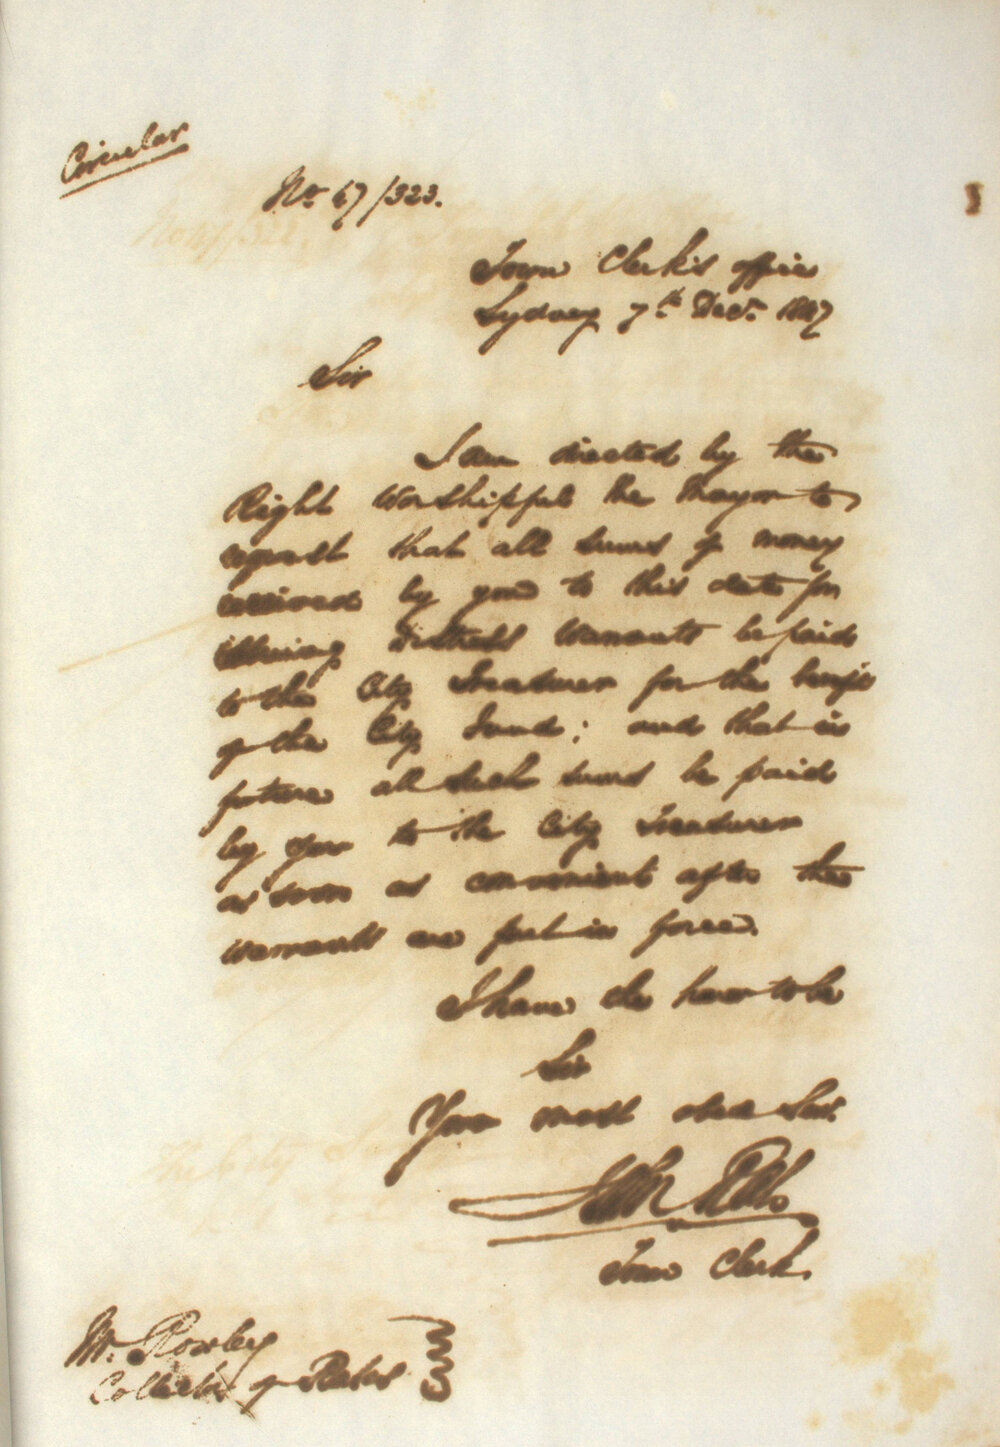 Circular
No 47/323.
Town Clerk's office
Sydney 7th Decr. 1847
Sir
I am directed by the
Right Worshipful the Mayor to
request that all sums of money
received by you to this date for
issuing distress warrants be paid
to the City Treasurer for the benefit
of the City Fund; and that in
future all such sums be paid
by you to the City Treasurer
as soon as convenient after the
warrants are put in force.
I have the honor to be
Sir
Your most obed Sert.
John
Town Clerk.
Mr. Rowley
Collector of Rates